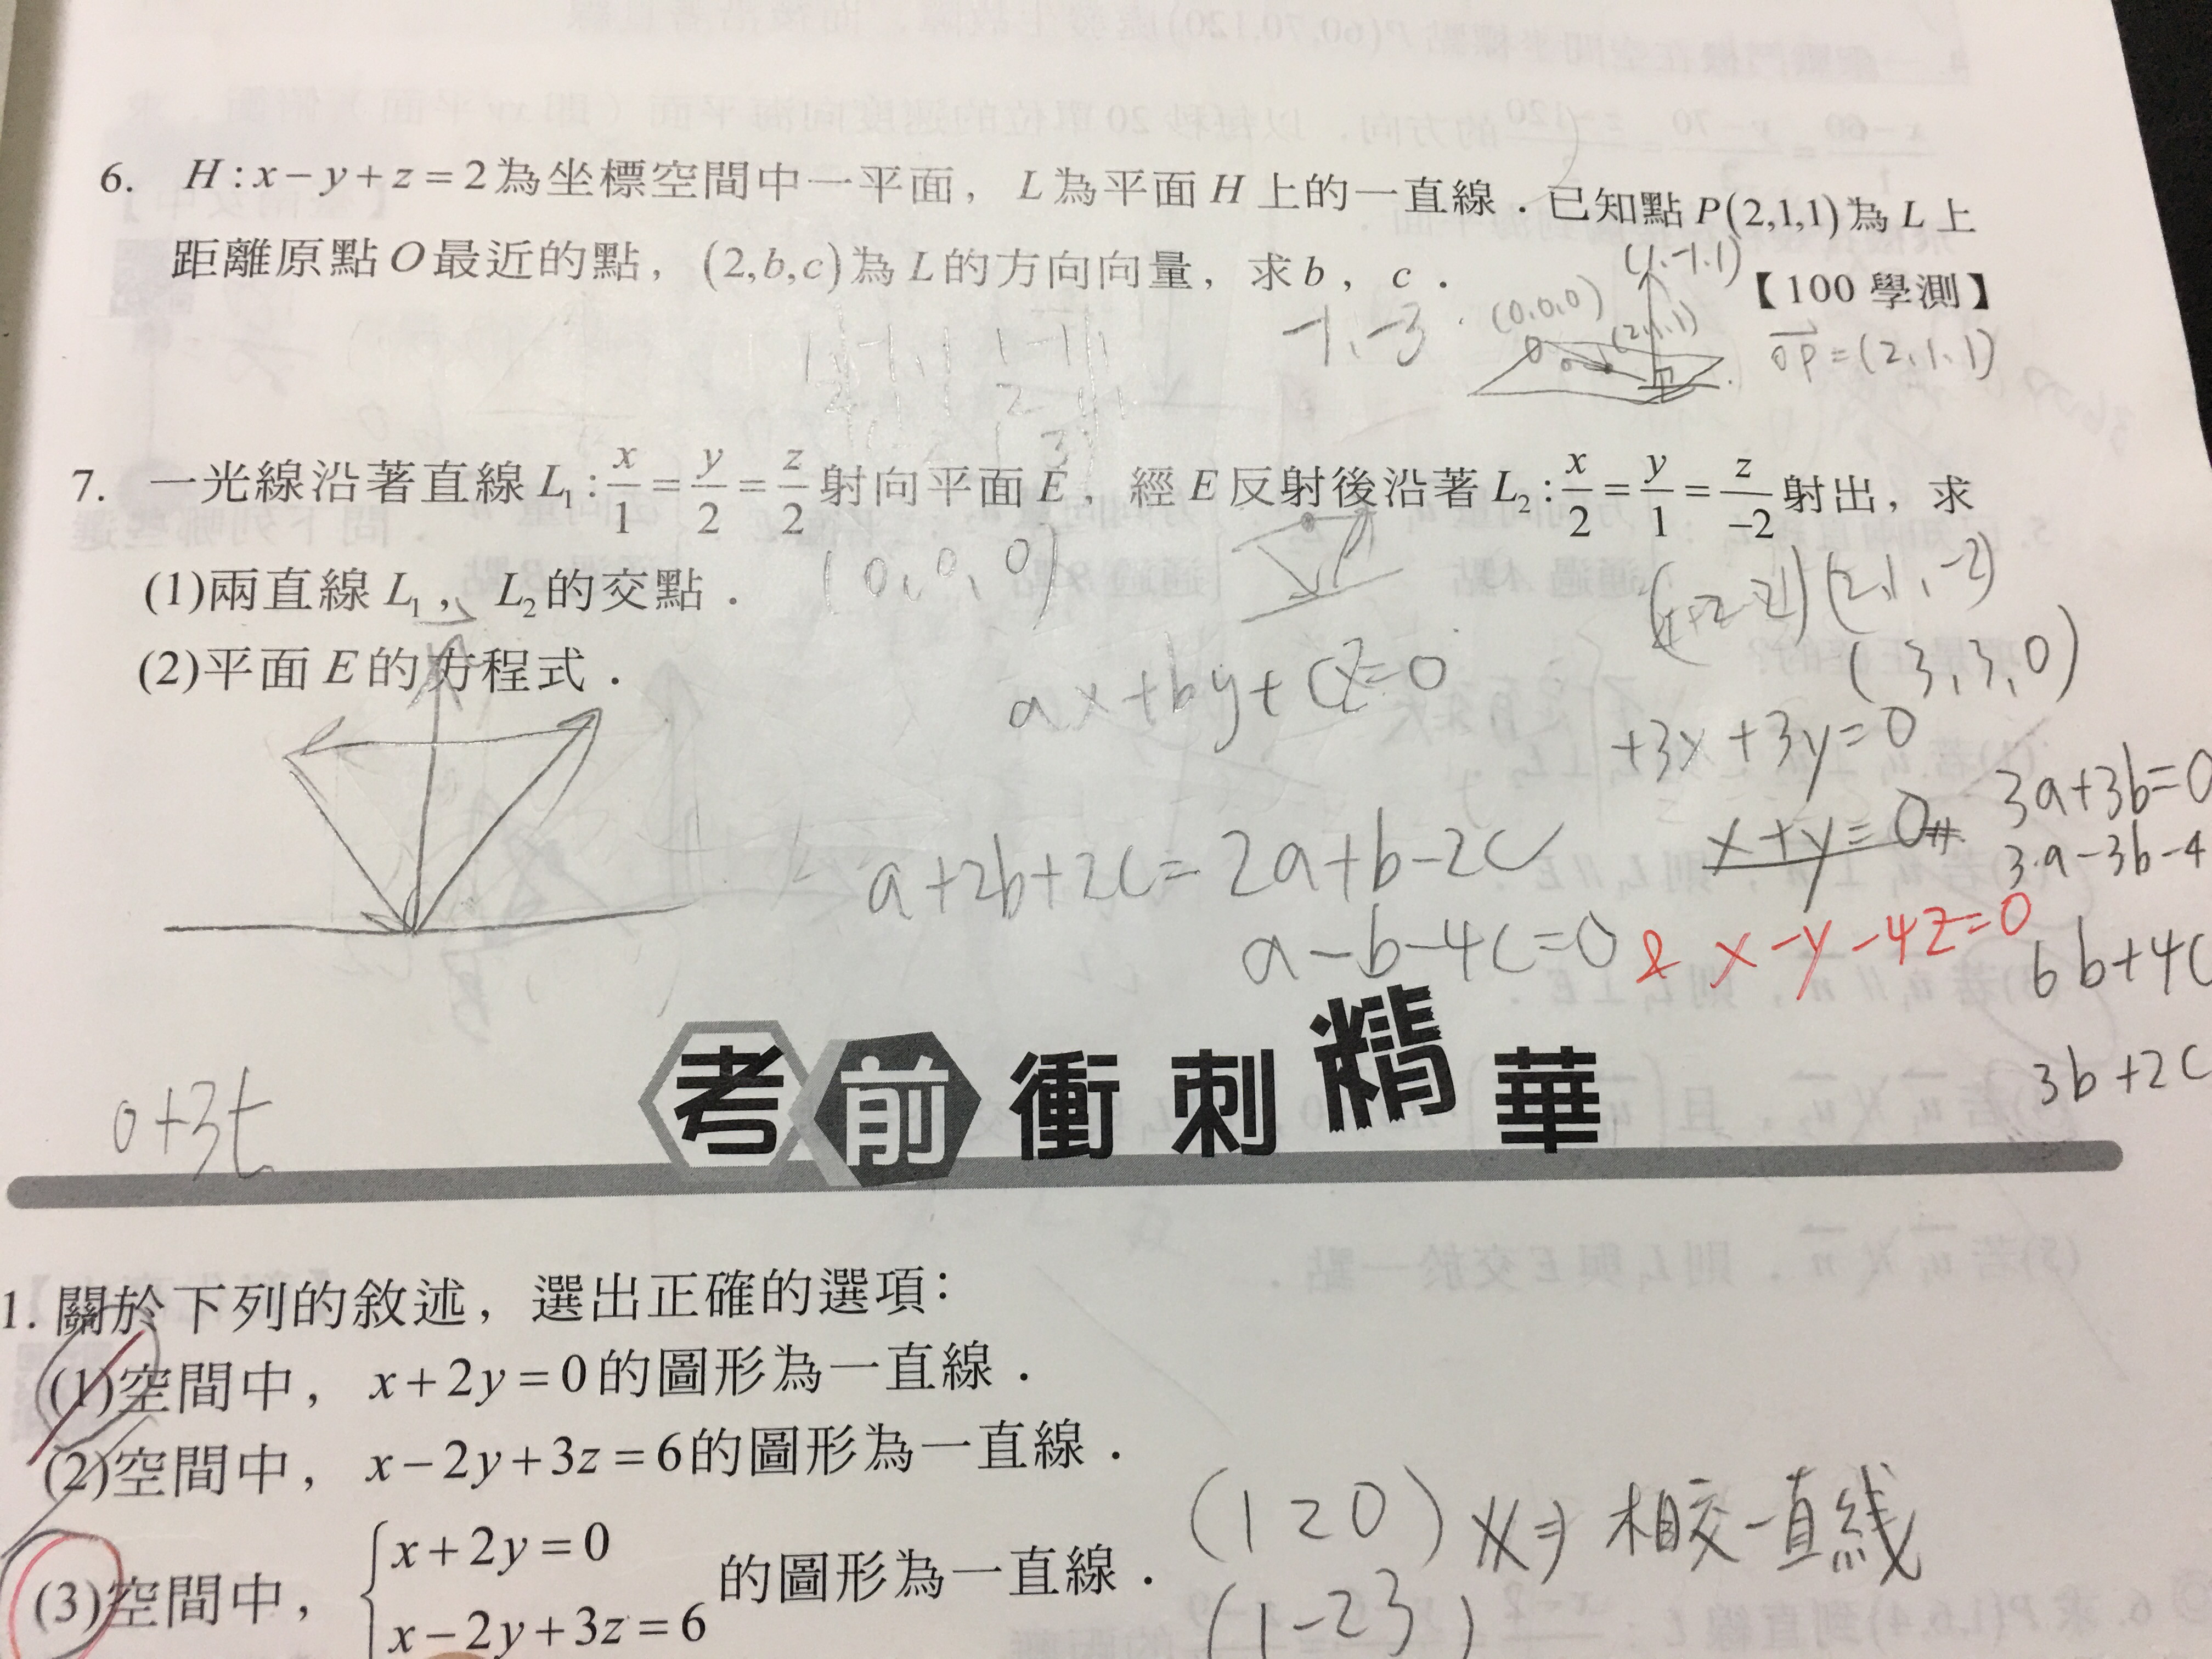 6. H:x−y+z=2為坐標空間中一平面，L為平面H上的一直線．已知點P(2,1,1)為L上
距離原點O最近的點，(2,b,c)為L的方向向量，求b，c．
【100學測】
(1,-1,1)
-1,-3
(0,0,0)
(2,1,1)
OP=(2,1,1)
7. 一光線沿著直線L₁:x/1=y/2=z/2射向平面E，經E反射後沿著L₂:x/2=y/1=z/−2射出，求
(1)兩直線L₁、L₂的交點．
(0,0,0)
(2,1,-2)
(2)平面E的方程式．
(3,3,0)
ax+by+cz=0
+3x+3y=0
x+y=0
3a+3b=0
a+2b+2c=2a+b-2c
3a-3b-4
a-b-4c=0
& x-y-4z=0
6b+4c
3b+2c
0+3t
考前衝刺精華
1. 關於下列的敘述，選出正確的選項：
(1)空間中，x+2y=0的圖形為一直線．
(2)空間中，x−2y+3z=6的圖形為一直線．
(3)空間中，{x+2y=0
x−2y+3z=6 的圖形為一直線．
(1 2 0)
相交一直線
(1-23)